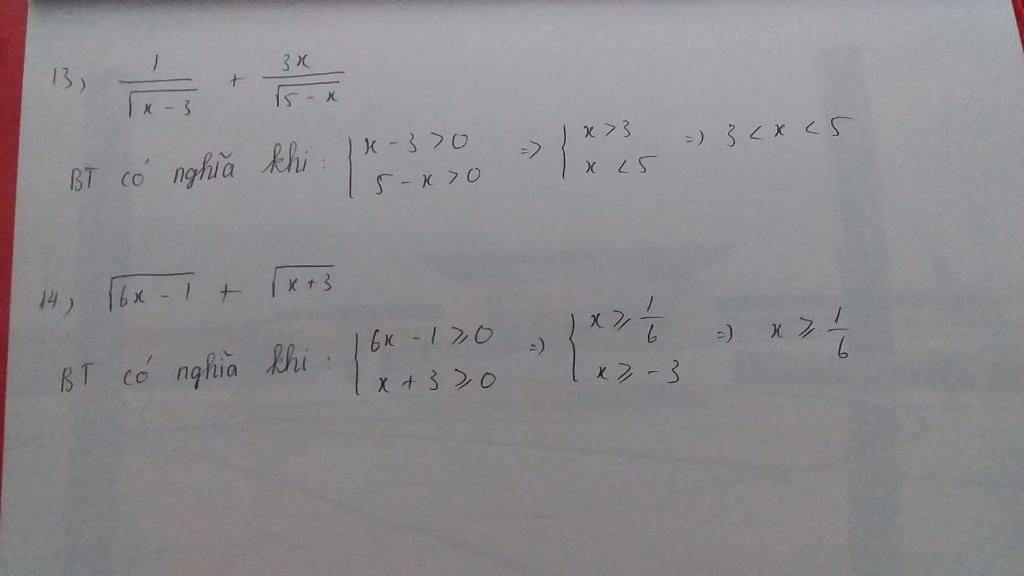 13, 1/√(x - 3) + 3x/√(5 - x)
BT có nghĩa khi: { x - 3 > 0 ; 5 - x > 0 => { x > 3 ; x < 5 => 3 < x < 5
14, √(6x - 1) + √(x + 3)
BT có nghĩa khi: { 6x - 1 ⩾ 0 ; x + 3 ⩾ 0 => { x ⩾ 1/6 ; x ⩾ - 3 => x ⩾ 1/6